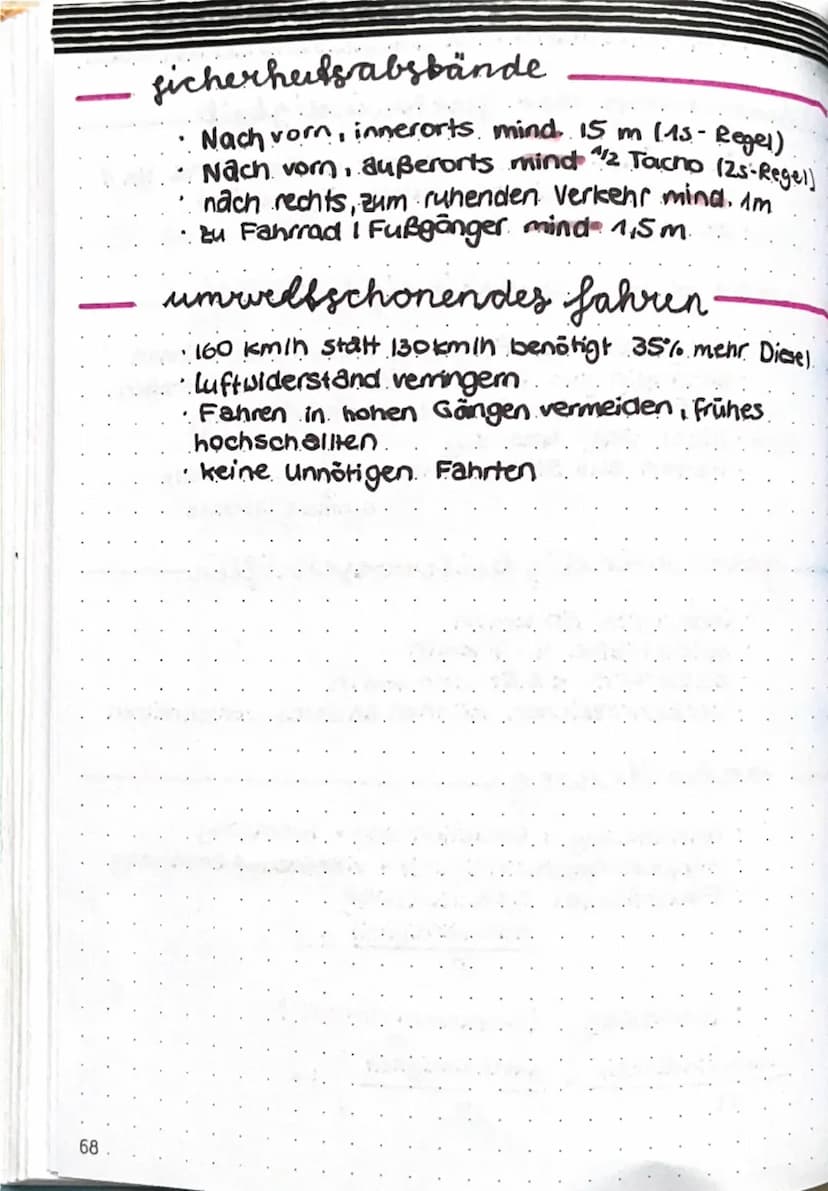 sicherheitsabstände
· Nach vorn, innerorts mind. 15 m (1s-Regel)
· Nach vorn, außerorts mind. 1/2 Tacho (2s-Regel)
· nach rechts, zum ruhenden Verkehr mind. 1m
· zu Fahrrad / Fußgänger mind. 1,5 m
umweltschonendes fahren
· 160 km/h statt 130 km/h benötigt 35% mehr Diesel
· Luftwiderstand verringern
· Fahren in hohen Gängen vermeiden, frühes
hochschalten
· keine unnötigen Fahrten
68